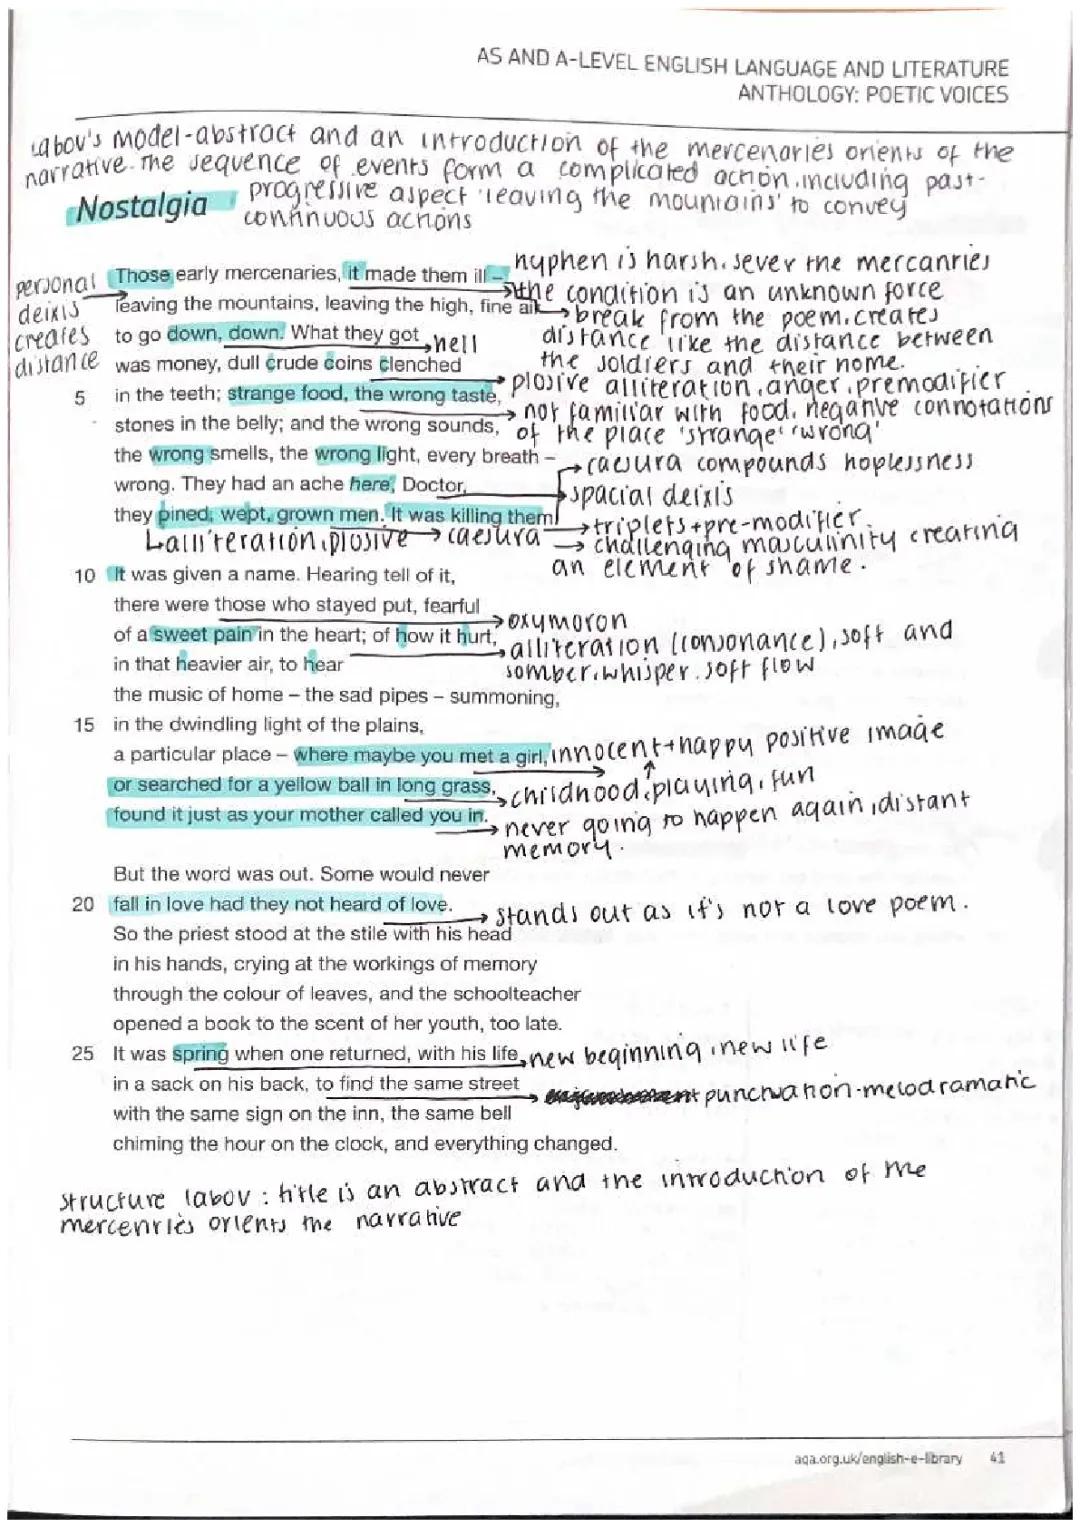 AS AND A-LEVEL ENGLISH LANGUAGE AND LITERATURE
ANTHOLOGY: POETIC VOICES
Labov's model-abstract and an introduction of the mercenaries orients of the
narrative. The sequence of events form a complicated action, including past-
progressive aspect 'leaving the mountains' to convey
continuous actions
Nostalgia
personal
deixis
creates
distance
Those early mercenaries, it made them ill –
hyphen is harsh. sever the mercanries
the condition is an unknown force
leaving the mountains, leaving the high, fine air
break from the poem. creates
distance like the distance between
the soldiers and their home.
to go down, down. What they got
hell
was money, dull crude coins clenched
plosive alliteration, anger, premodifier
5 in the teeth; strange food, the wrong taste,
not familiar with food. negative connotations
of the place 'strange' 'wrong'
stones in the belly; and the wrong sounds,
the wrong smells, the wrong light, every breath –
caesura compounds hoplessness
wrong. They had an ache here, Doctor,
spacial deixis
they pined, wept, grown men. It was killing them.
triplets + pre-modifier
challenging masculinity creating
an element of shame.
alliteration, plosive caesura
10 It was given a name. Hearing tell of it,
there were those who stayed put, fearful
oxymoron
of a sweet pain in the heart; of how it hurt,
alliteration (consonance), soft and
somber, whisper. soft flow
in that heavier air, to hear
the music of home – the sad pipes – summoning,
15 in the dwindling light of the plains,
a particular place – where maybe you met a girl,
innocent + happy positive image
or searched for a yellow ball in long grass,
childhood, playing, fun
found it just as your mother called you in.
never going to happen again, distant
memory.
But the word was out. Some would never
20 fall in love had they not heard of love.
stands out as it's not a love poem.
So the priest stood at the stile with his head
in his hands, crying at the workings of memory
through the colour of leaves, and the schoolteacher
opened a book to the scent of her youth, too late.
25 It was spring when one returned, with his life
new beginning, new life
in a sack on his back, to find the same street
punctuation-melodramatic
with the same sign on the inn, the same bell
chiming the hour on the clock, and everything changed.
structure labov: title is an abstract and the introduction of the
mercenries orients the narrative
aqa.org.uk/english-e-library 41